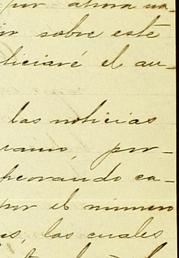 por ahora na-
ir sobre este
ticiaré el au-
las noticias
ramo, por-
peorando ca-
por el número
os, los cuales